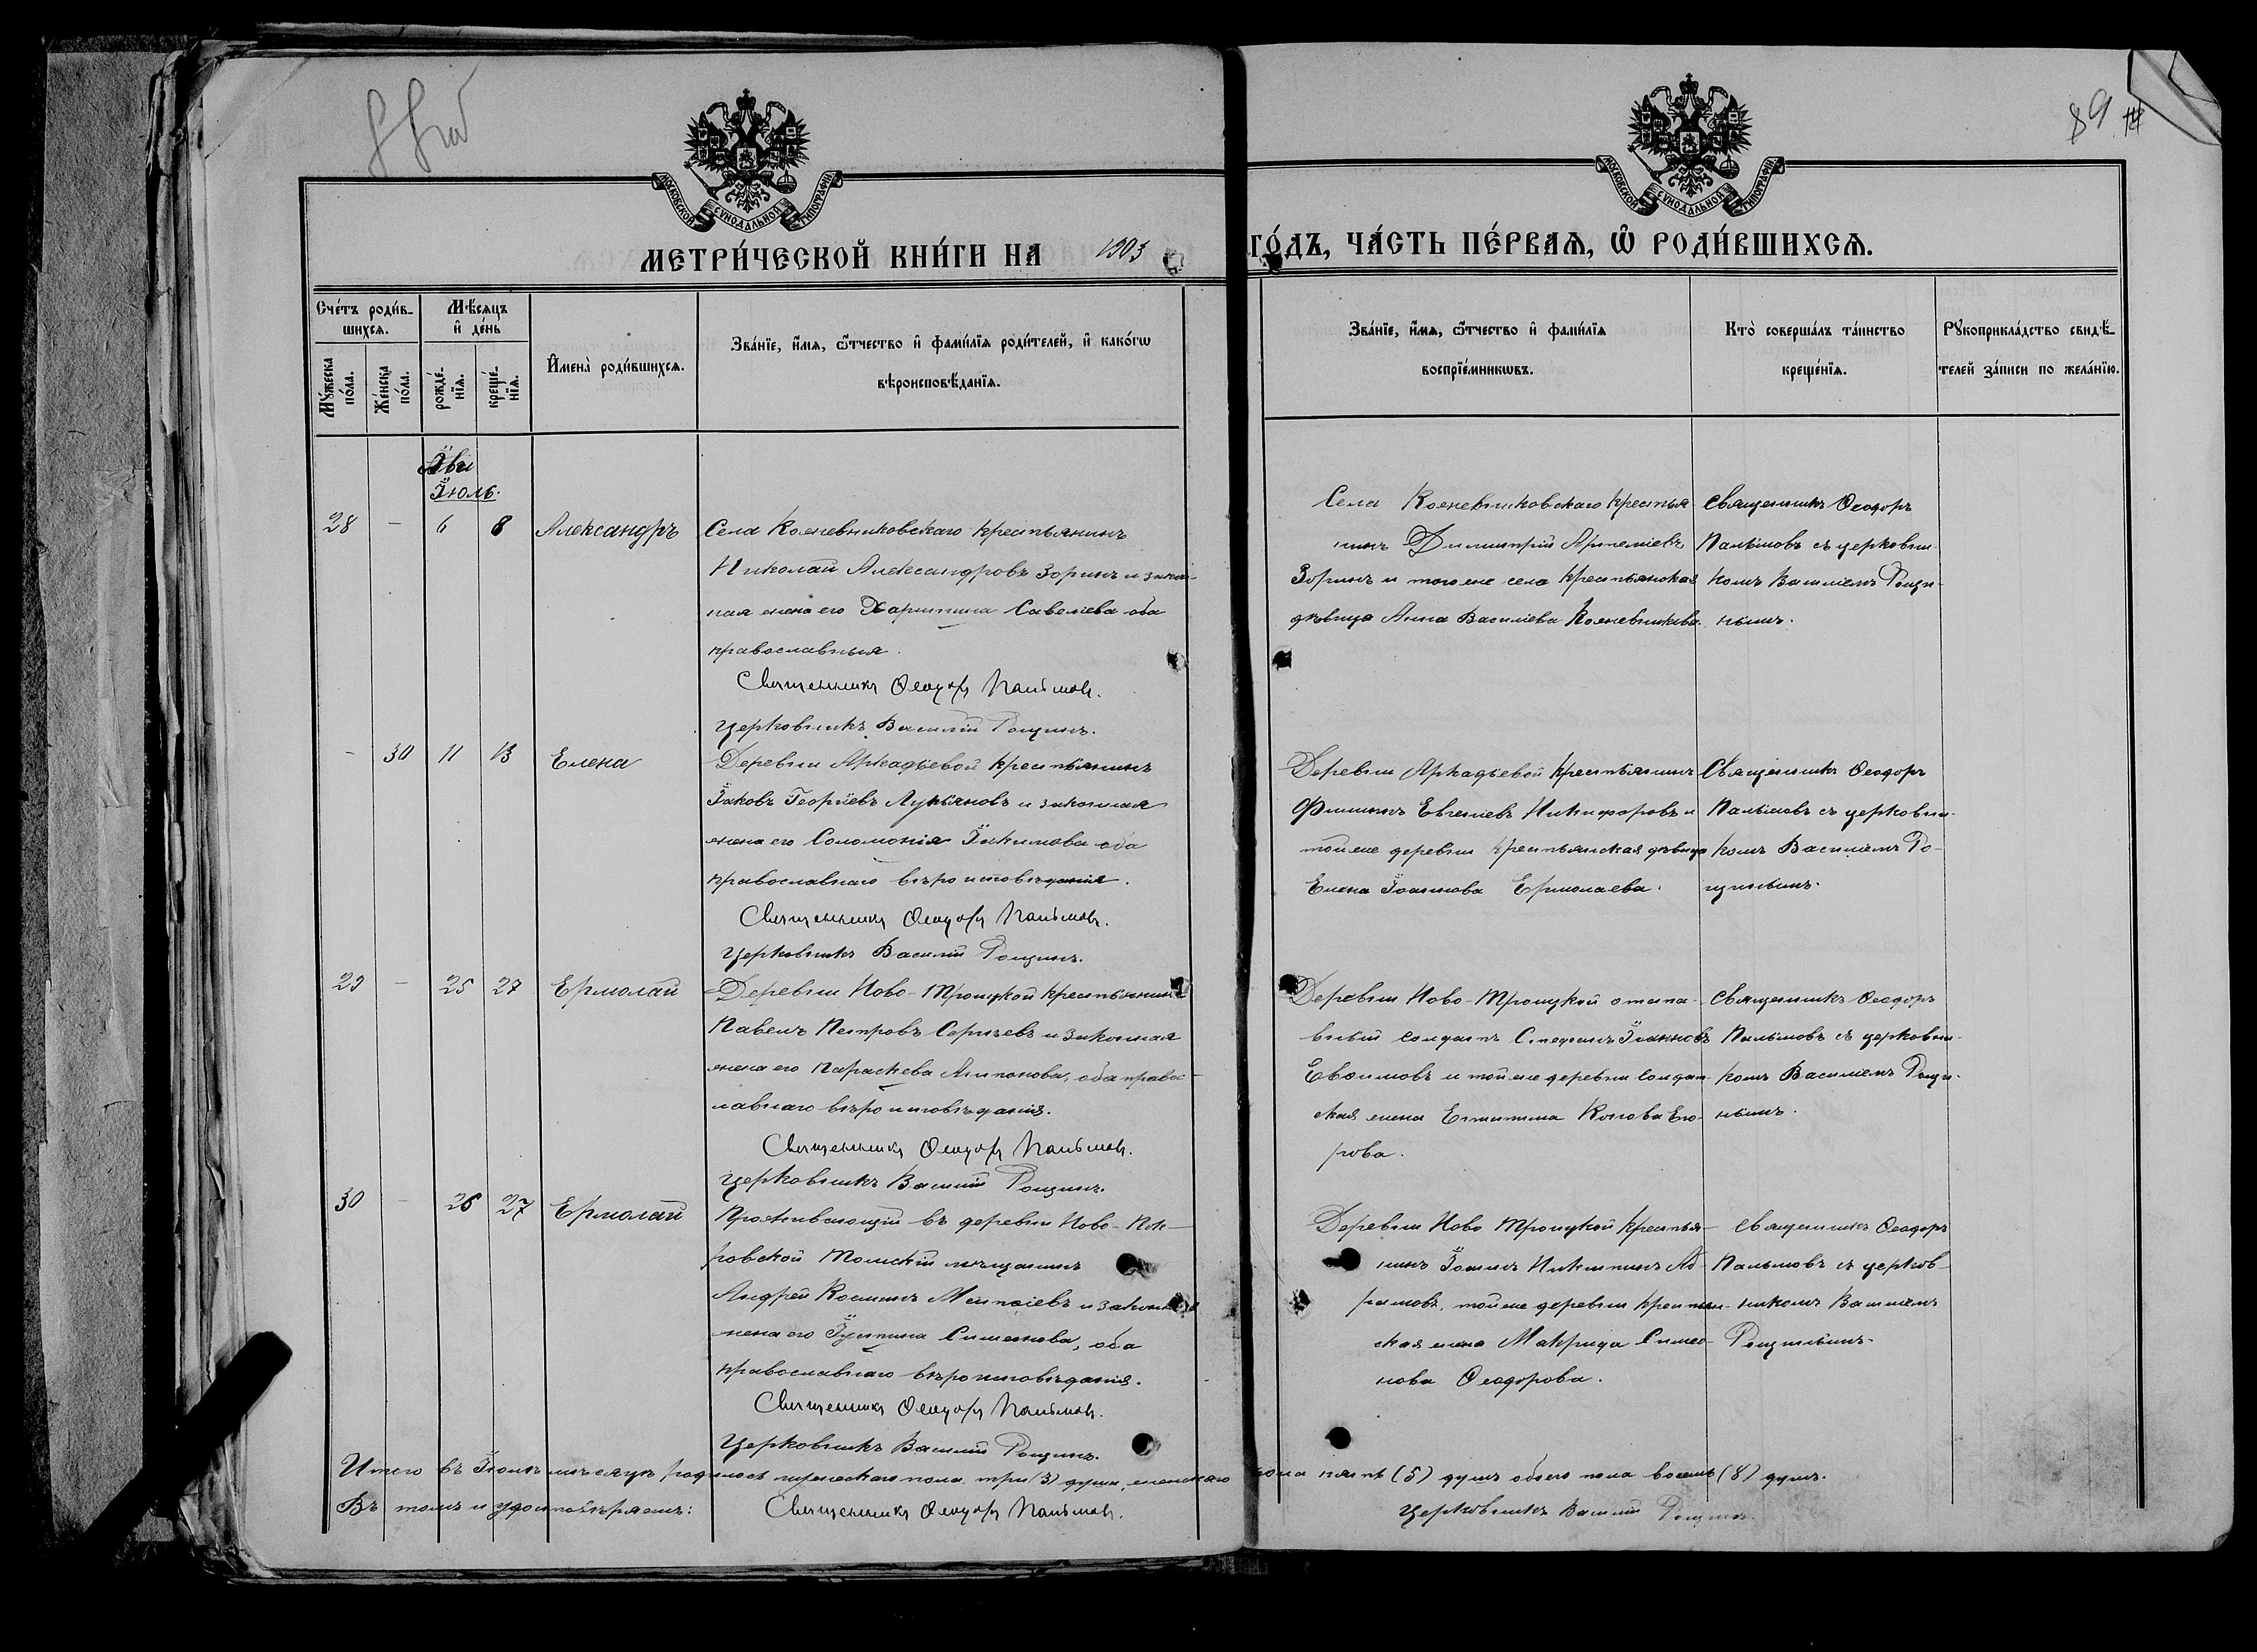 89
МОСКОВСКОЙ СУНОДАЛЬНОЙ ТИПОГРАФІИ
МОСКОВСКОЙ СУНОДАЛЬНОЙ ТИПОГРАФІИ
МЕТРИ́ЧЕСКОЙ КНИ́ГИ НА 1903 ГО́ДЪ, ЧА́СТЬ ПЕ́РВАѦ, Ѡ҆ РОДИ́ВШИХСѦ.
Сче́тъ роди́в-
шихсѧ.
Мꙋжеска по́ла.
Же́нска по́ла.
Мѣ́сѧцъ
и҆ де́нь
рожде́-
нїѧ.
креще́-
нїѧ.
И҆мена̀ роди́вшихсѧ.
Зва́нїе, и҆́мѧ, ѻ҆́тчество и҆ фами́лїѧ роди́телей, и҆ како́гѡ
вѣроисповѣ́данїѧ.
Зва́нїе, и҆́мѧ, ѻ҆́тчество и҆ фами́лїѧ
воспрїе́мникѡвъ.
Кто̀ соверша́лъ та́инство
креще́нїѧ.
Рꙋкоприкла́дство свидѣ́-
телей за́писи по жела́нїю.
Іюль.
28 - 6 8 Александръ
Села Кожевниковскаго крестьянинъ
Николай Александровъ Зоринъ и закон-
ная жена его Харитина Савеліева оба
православныя.
Священникъ Ѳеодоръ Пальмовъ.
Церковникъ Василій Рощинъ.
Села Кожевниковскаго крестья
нинъ Димитрій Артеміевъ
Зоринъ и того же села крестьянская
дѣвица Анна Василіева Кожевникова.
Священникъ Ѳеодоръ
Пальмовъ съ церковни-
комъ Василіемъ Рощи-
нымъ.
- 30 11 13 Елена
Деревни Аркадьевой крестьянинъ
Іаковъ Георгіевъ Лукьяновъ и законная
жена его Соломонія Іакимова оба
православнаго вѣроисповѣданія.
Священникъ Ѳеодоръ Пальмовъ.
Церковникъ Василій Рощинъ.
Деревни Аркадьевой крестьянинъ
Евгеніевъ Никифоровъ и
той же деревни крестьянская дѣвица
Елена Іоаннова Ермолаева.
Священникъ Ѳеодоръ
Пальмовъ съ церковни-
комъ Василіемъ Ро-
щинымъ.
29 - 25 27 Ермолай
Деревни Ново-Троицкой крестьянинъ
Павелъ Петровъ Сергѣевъ и законная
жена его Параскева оба правос-
лавнаго вѣроисповѣданія.
Священникъ Ѳеодоръ Пальмовъ.
Церковникъ Василій Рощинъ.
Деревни Ново-Троицкой отста-
вный солдатъ Стефанъ Іоанновъ
Евѳимовъ и той же деревни солдат-
ская жена Его-
рова.
Священникъ Ѳеодоръ
Пальмовъ съ церковни-
комъ Василіемъ Рощи-
нымъ.
30 - 26 27 Ермолай
Проживающій въ деревни Ново-Пок-
ровской Томскій мѣщанинъ
Андрей Косминъ и законная
жена его Іустина Симеонова, оба
православнаго вѣроисповѣданія.
Священникъ Ѳеодоръ Пальмовъ.
Церковникъ Василій Рощинъ.
Деревни Ново Троицкой крестья-
нинъ Іоаннъ Никитинъ Аб-
рамовъ, той же деревни крестьян-
ская жена Макрида Симео-
нова Ѳеодорова.
Священникъ Ѳеодоръ
Пальмовъ съ церков-
никомъ Василіемъ
Рощинымъ.
Итого въ Іюлѣ мѣсяцѣ родилось мужескаго пола три (3) души, женскаго пола пять (5) душъ обоего пола восемь (8) душъ.
Въ томъ и удостовѣряемъ: Священникъ Ѳеодоръ Пальмовъ.
Церковникъ Василій Рощинъ.